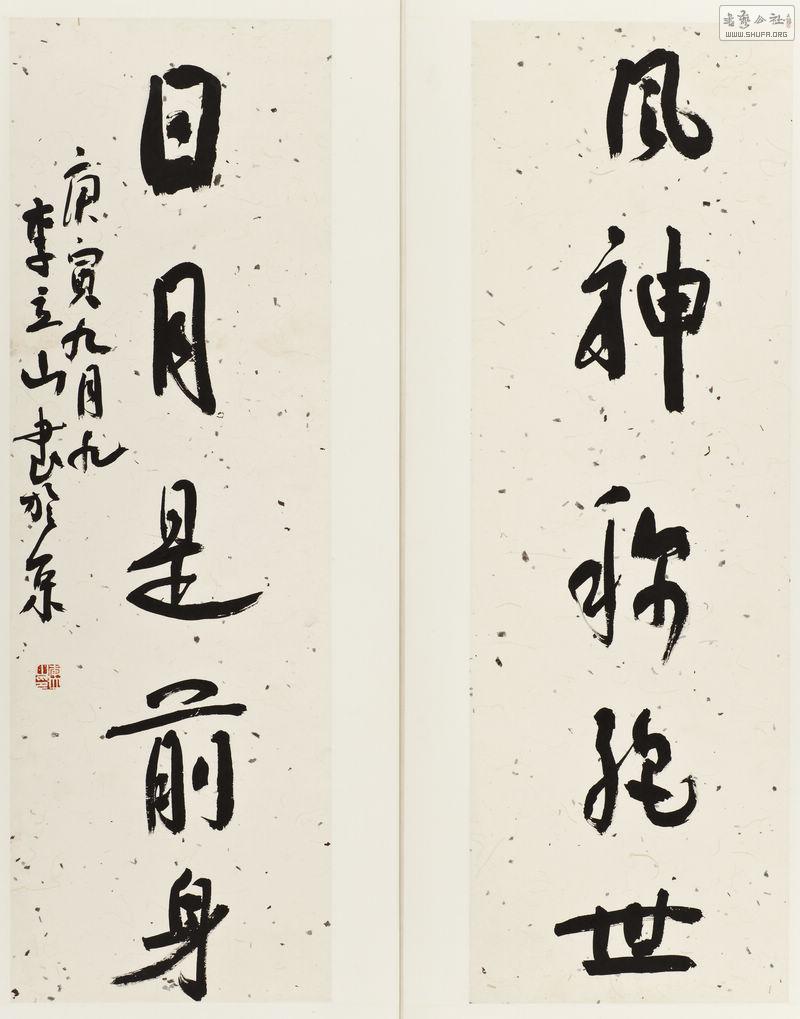 风神称绝世
日月是前身
庚寅九月九
李立山书於京
书艺公社
WWW.SHUFA.ORG